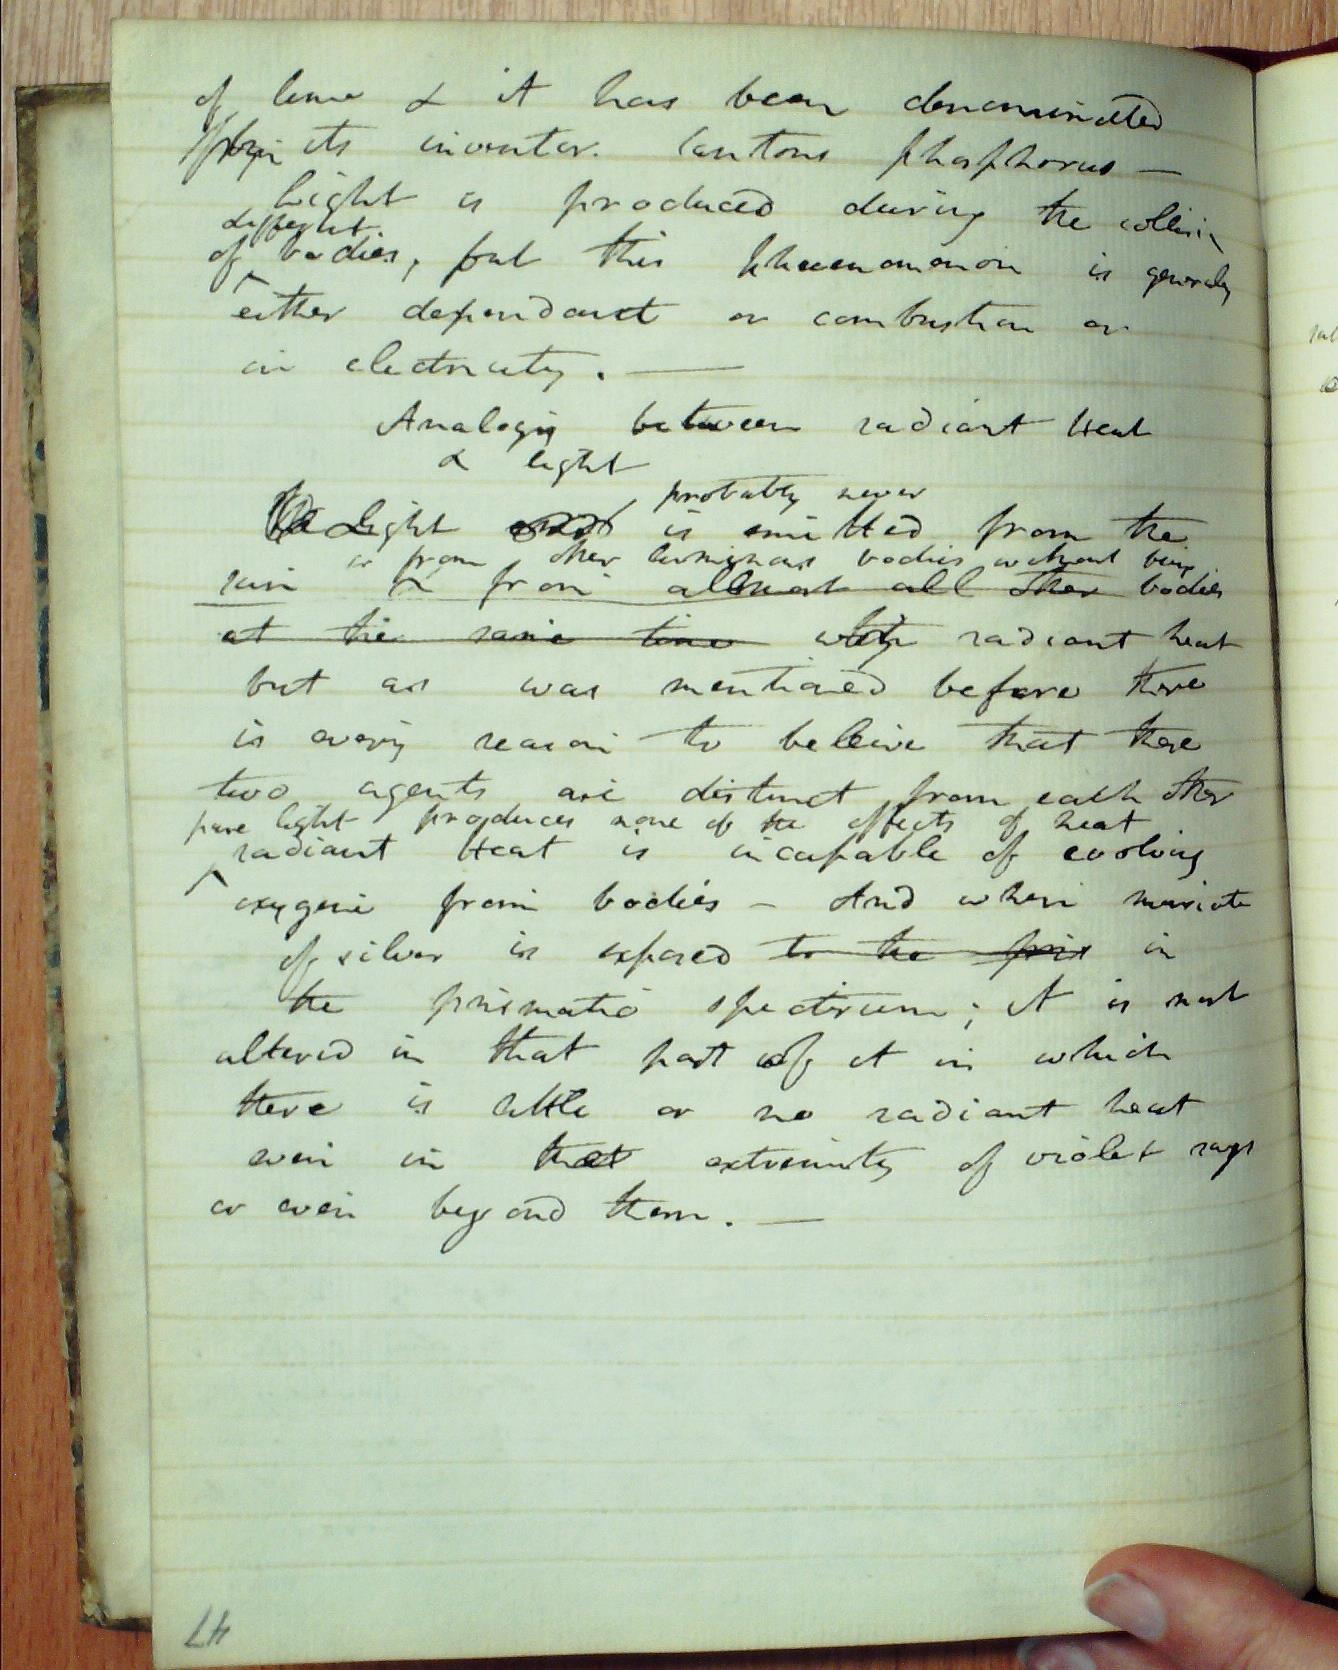 of lime & it has been denominated
from its inventor. Cantons phosphorus —
Light is produced during the collision
different
of bodies, but this phaenomenon is generaly
either dependant on combustion or
on electricity. —
Analogy between radiant Heat
& light
probably never
Light is emitted from the
or from other luminous bodies without being
sun & from almost all other bodies
at the same time with radiant heat
but as was mentioned before there
is every reason to beleive that these
two agents are distinct from each other
pure light produces none of the effects of heat
radiant Heat is incapable of evolving
oxygene from bodies – And when muriate
of silver is exposed to the pris in
the prismatic spectrum; it is most
altered in that part of it in which
there is little or no radiant heat
even in that extremity of violet rays
or even beyond them. —
47